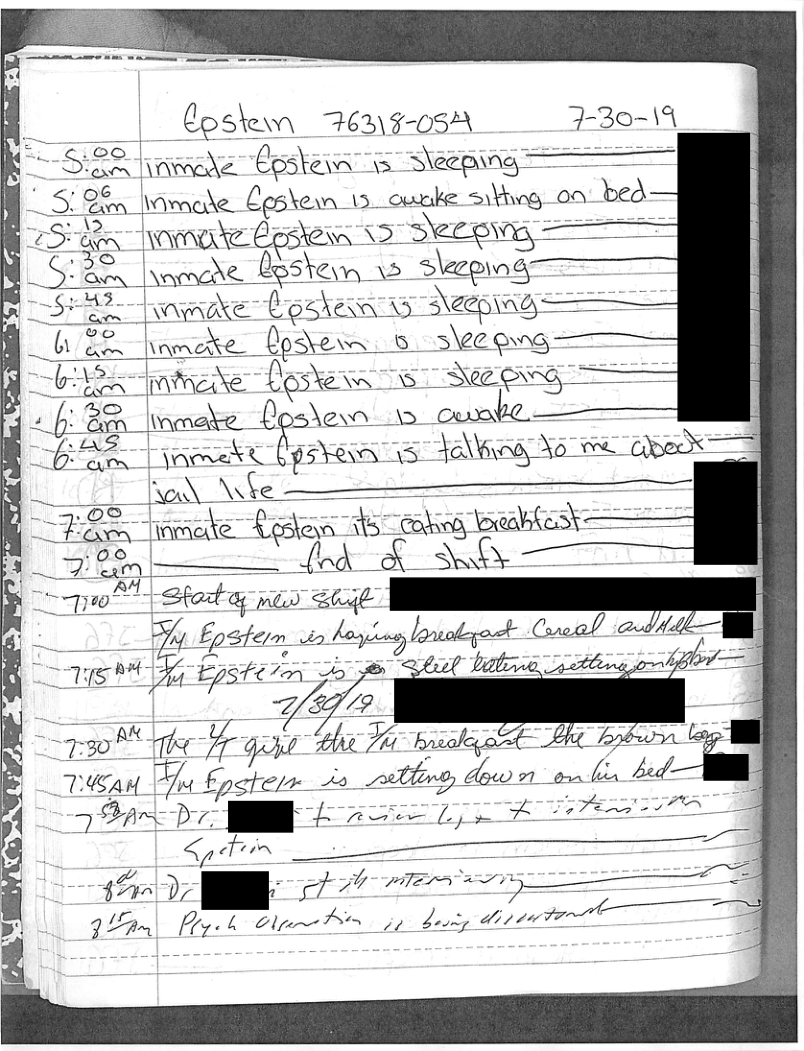 Epstein 76318-054 7-30-19
5:00 am inmate Epstein is sleeping
5:06 am inmate Epstein is awake sitting on bed
5:15 am inmate Epstein is sleeping
5:30 am inmate Epstein is sleeping
5:45 am inmate Epstein is sleeping
6:00 am inmate Epstein is sleeping
6:15 am inmate Epstein is sleeping
6:30 am inmate Epstein is awake
6:45 am inmate Epstein is talking to me about
jail life
7:00 am inmate Epstein its eating breakfast
7:00 am End of shift
7:00 AM Start of new shift
I/M Epstein is having breakfast Cereal and Milk
7:15 AM I/M Epstein is steel eating setting on his bed
7/30/19
7:30 AM The give the I/M breakfast the brown bag
7:45 AM I/M Epstein is setting down on his bed
AM Dr. to review log +
Epstein
8:00 am Dr interviewing
8:15 Am Psych observation is being